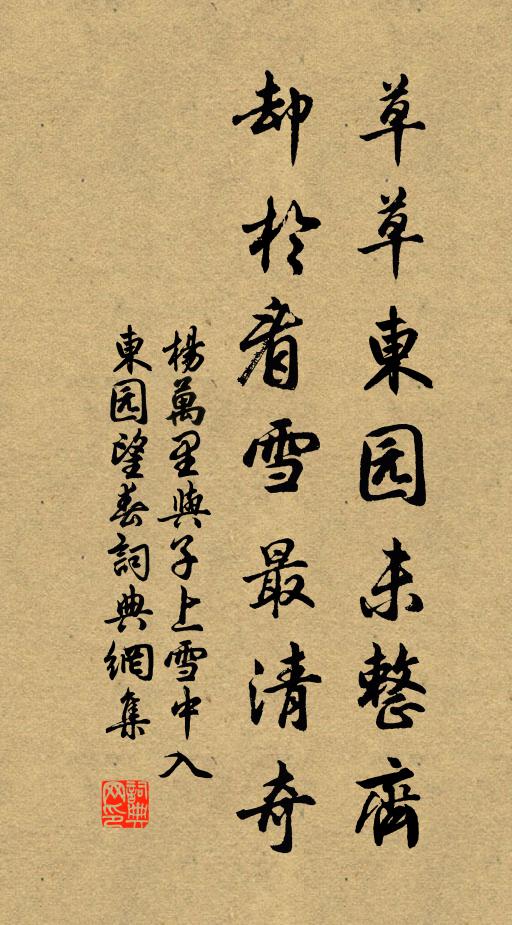 草草東园未整齊
却於看雪最清奇
楊萬里與子上雪中入
東园望春詞典網集
詞典
网印